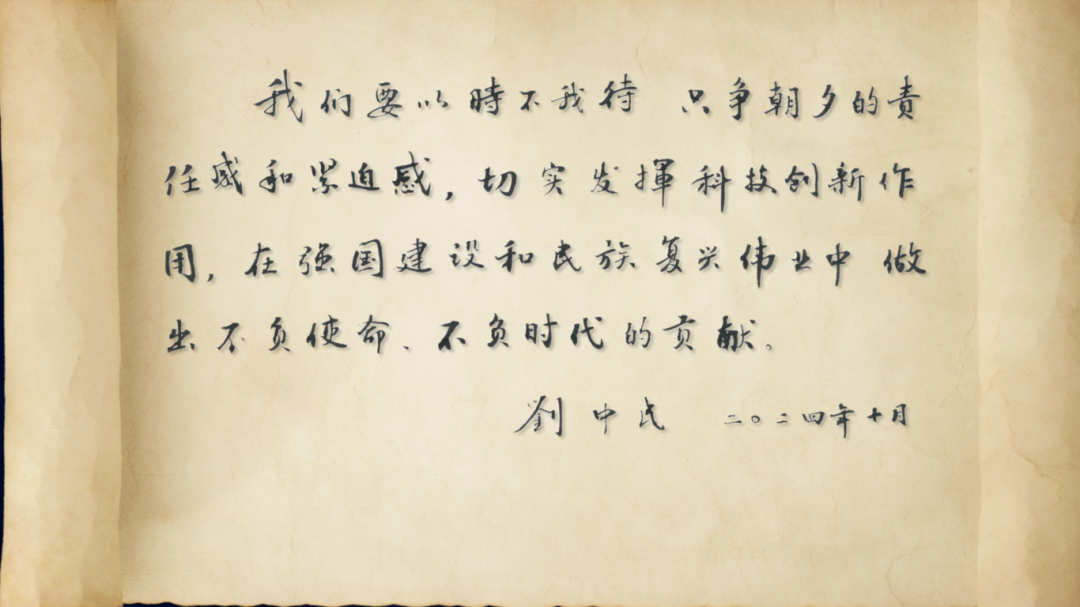 我们要以時不我待 只争朝夕的责
任感和紧迫感，切实发揮科技创新作
用，在强国建设和民族复兴伟业中 做
出不负使命、不负时代的贡献。
劉中民 二〇二四年十月